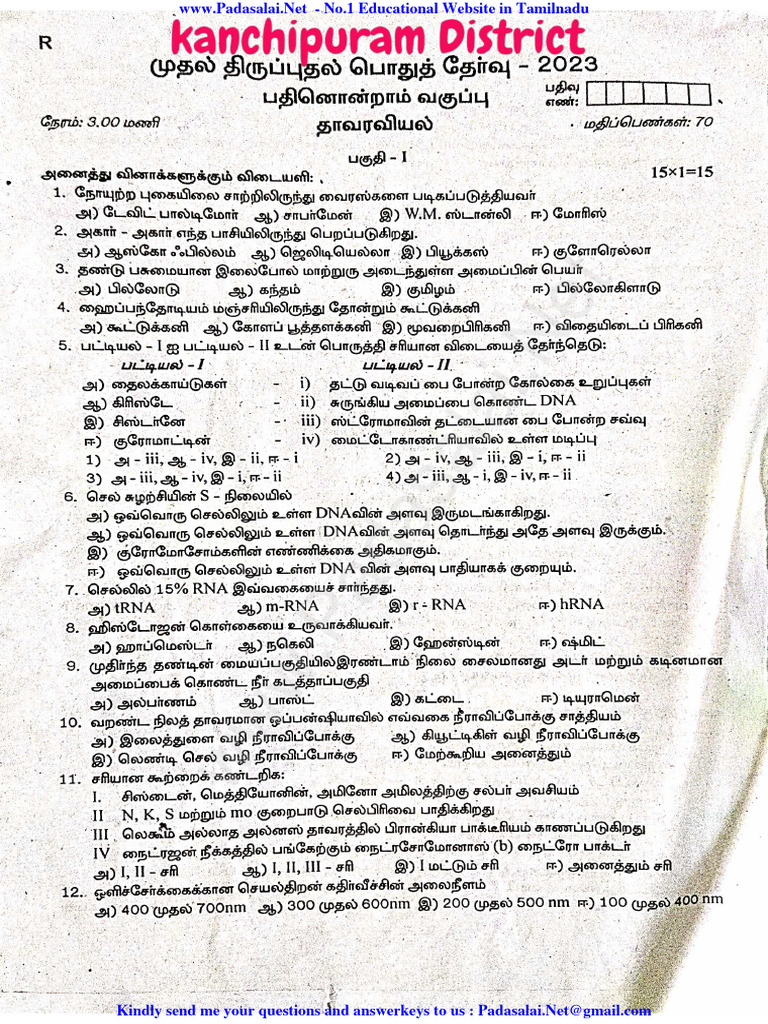 www.Padasalai.Net - No.1 Educational Website in Tamilnadu
R
kanchipuram District
முதல் திருப்புதல் பொதுத் தேர்வு - 2023
பதினொன்றாம் வகுப்பு
பதிவு எண்:
நேரம்: 3.00 மணி
தாவரவியல்
மதிப்பெண்கள்: 70
பகுதி - I
அனைத்து வினாக்களுக்கும் விடையளி: 15×1=15
1. நோயுற்ற புகையிலை சாற்றிலிருந்து வைரஸ்களை படிகப்படுத்தியவர்
அ) டேவிட் பால்டிமோர் ஆ) சாபர்மேன் இ) W.M. ஸ்டான்லி ஈ) மோரிஸ்
2. அகார் - அகார் எந்த பாசியிலிருந்து பெறப்படுகிறது.
அ) ஆஸ்கோ ஃபில்லம் ஆ) ஜெலிடியெல்லா இ) பியூக்கஸ் ஈ) குளோரெல்லா
3. தண்டு பசுமையான இலைபோல் மாற்றுரு அடைந்துள்ள அமைப்பின் பெயர்
அ) பில்லோடு ஆ) கந்தம் இ) குமிழம் ஈ) பில்லோகிளாடு
4. ஹைப்பந்தோடியம் மஞ்சரியிலிருந்து தோன்றும் கூட்டுக்கனி
அ) கூட்டுக்கனி ஆ) கோளப் பூத்தளக்கனி இ) மூவறைபிரிகனி ஈ) விதையிடைப் பிரிகனி
5. பட்டியல் - I ஐ பட்டியல் - II உடன் பொருத்தி சரியான விடையைத் தேர்ந்தெடு:
பட்டியல் - I பட்டியல் - II
அ) தைலக்காய்டுகள் - i) தட்டு வடிவப் பை போன்ற கோல்கை உறுப்புகள்
ஆ) கிரிஸ்டே - ii) சுருங்கிய அமைப்பை கொண்ட DNA
இ) சிஸ்டர்னே - iii) ஸ்ட்ரோமாவின் தட்டையான பை போன்ற சவ்வு
ஈ) குரோமாட்டின் - iv) மைட்டோகாண்ட்ரியாவில் உள்ள மடிப்பு
1) அ - iii, ஆ - iv, இ - ii, ஈ - i 2) அ - iv, ஆ - iii, இ - i, ஈ - ii
3) அ - iii, ஆ - iv, இ - i, ஈ - ii 4) அ - iii, ஆ - i, இ - iv, ஈ - ii
6. செல் சுழற்சியின் S - நிலையில்
அ) ஒவ்வொரு செல்லிலும் உள்ள DNAவின் அளவு இருமடங்காகிறது.
ஆ) ஒவ்வொரு செல்லிலும் உள்ள DNAவின் அளவு தொடர்ந்து அதே அளவு இருக்கும்.
இ) குரோமோசோம்களின் எண்ணிக்கை அதிகமாகும்.
ஈ) ஒவ்வொரு செல்லிலும் உள்ள DNA வின் அளவு பாதியாகக் குறையும்.
7. செல்லில் 15% RNA இவ்வகையைச் சார்ந்தது.
அ) tRNA ஆ) m-RNA இ) r - RNA ஈ) hRNA
8. ஹிஸ்டோஜன் கொள்கையை உருவாக்கியவர்.
அ) ஹாப்மெஸ்டர் ஆ) நகெலி இ) ஹேன்ஸ்டின் ஈ) ஷ்மிட்
9. முதிர்ந்த தண்டின் மையப்பகுதியில்இரண்டாம் நிலை சைலமானது அடர் மற்றும் கடினமான
அமைப்பைக் கொண்ட நீர் கடத்தாப்பகுதி
அ) அல்பர்ணம் ஆ) பாஸ்ட் இ) கட்டை ஈ) டியுராமென்
10. வறண்ட நிலத் தாவரமான ஒப்பன்ஷியாவில் எவ்வகை நீராவிப்போக்கு சாத்தியம்
அ) இலைத்துளை வழி நீராவிப்போக்கு ஆ) கியூட்டிகிள் வழி நீராவிப்போக்கு
இ) லெண்டி செல் வழி நீராவிப்போக்கு ஈ) மேற்கூறிய அனைத்தும்
11. சரியான கூற்றைக் கண்டறிக:
I. சிஸ்டைன், மெத்தியோனின், அமினோ அமிலத்திற்கு சல்பர் அவசியம்
II N, K, S மற்றும் mo குறைபாடு செல்பிரிவை பாதிக்கிறது
III லெகூம் அல்லாத அல்னஸ் தாவரத்தில் பிரான்கியா பாக்டீரியம் காணப்படுகிறது
IV நைட்ரஜன் நீக்கத்தில் பங்கேற்கும் நைட்ரசோமோனாஸ் (b) நைட்ரோ பாக்டர்
அ) I, II - சரி ஆ) I, II, III - சரி இ) I மட்டும் சரி ஈ) அனைத்தும் சரி
12. ஒளிச்சேர்க்கைக்கான செயல்திறன் கதிர்வீச்சின் அலைநீளம்
அ) 400 முதல் 700nm ஆ) 300 முதல் 600nm இ) 200 முதல் 500 nm ஈ) 100 முதல் 400 nm
Kindly send me your questions and answerkeys to us : Padasalai.Net@gmail.com